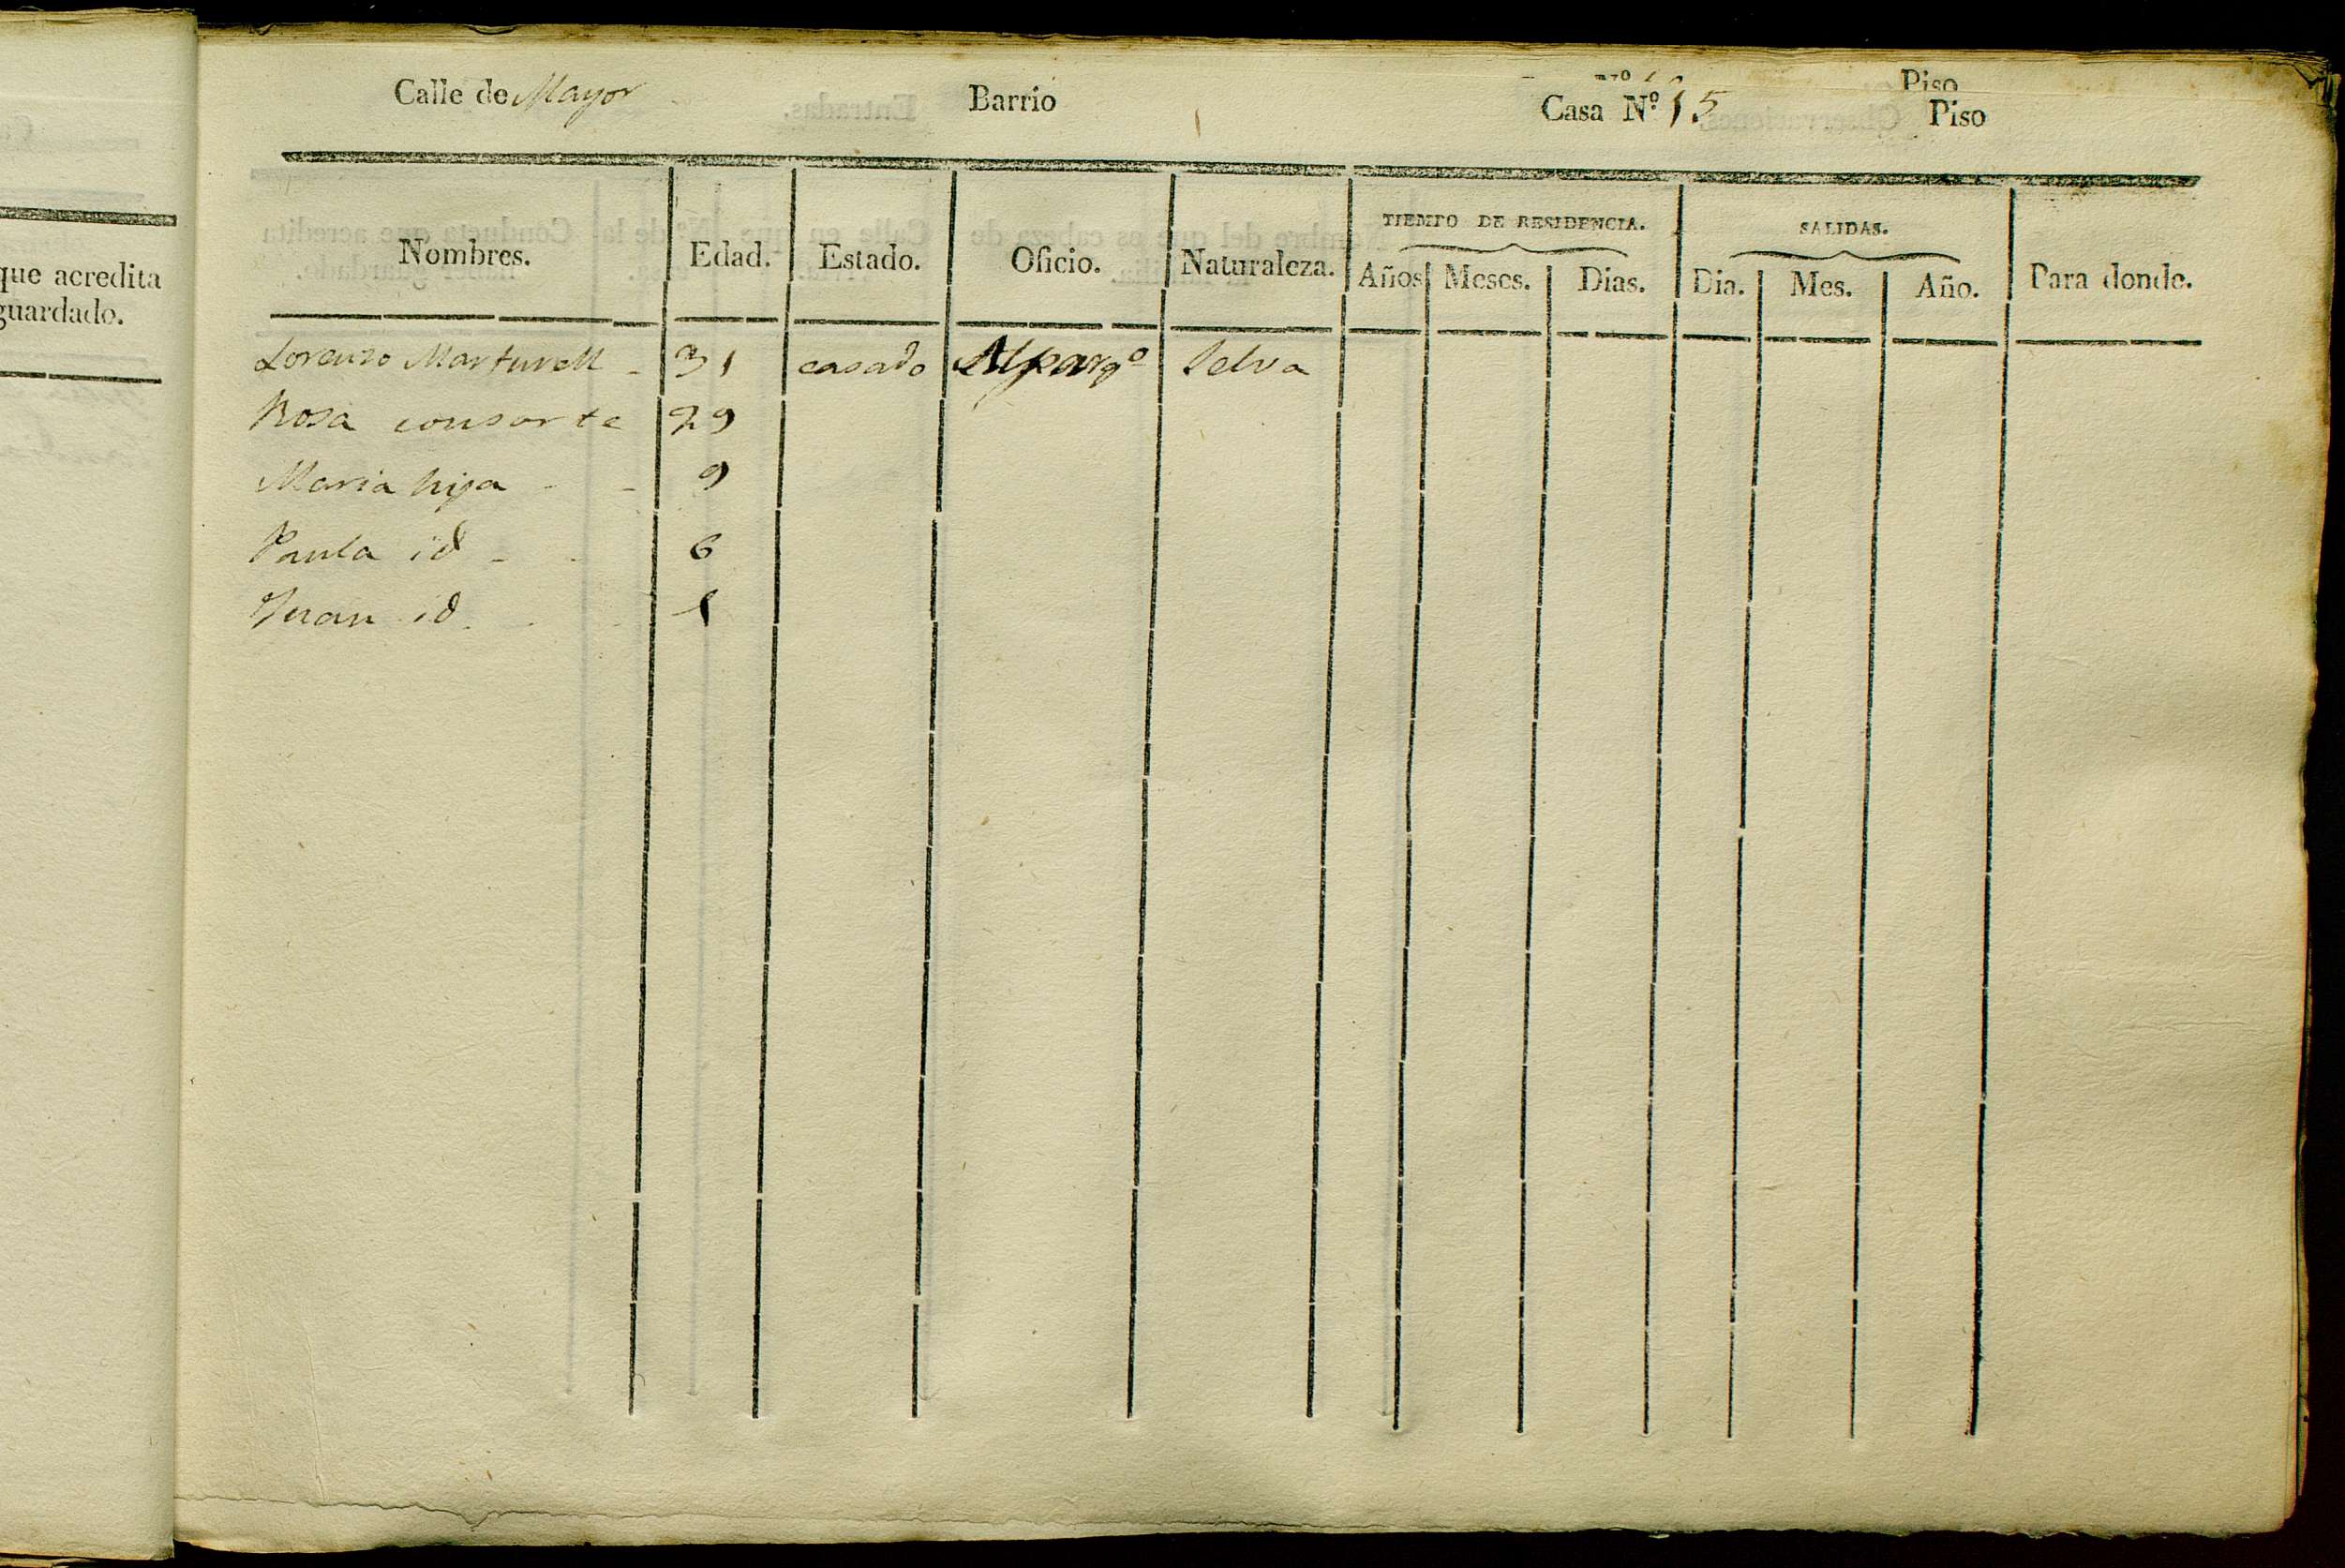 Piso
Calle de Mayor Barrio Casa Nº 15 Piso
que acredita
guardado.
TIEMPO DE RESIDENCIA. SALIDAS.
Nombres. Edad. Estado. Oficio. Naturaleza. Años Meses. Dias. Dia. Mes. Año. Para donde.
Lorenzo Marturell - 31 casado Alpargº Selva
Rosa consorte 29
Maria hija - - 9
Paula id - - 6
Juan id. - - 1